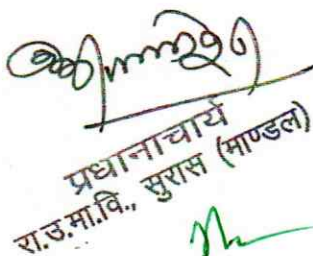 प्रधानाचार्य
रा.उ.मा.वि., सुरास (माण्डल)